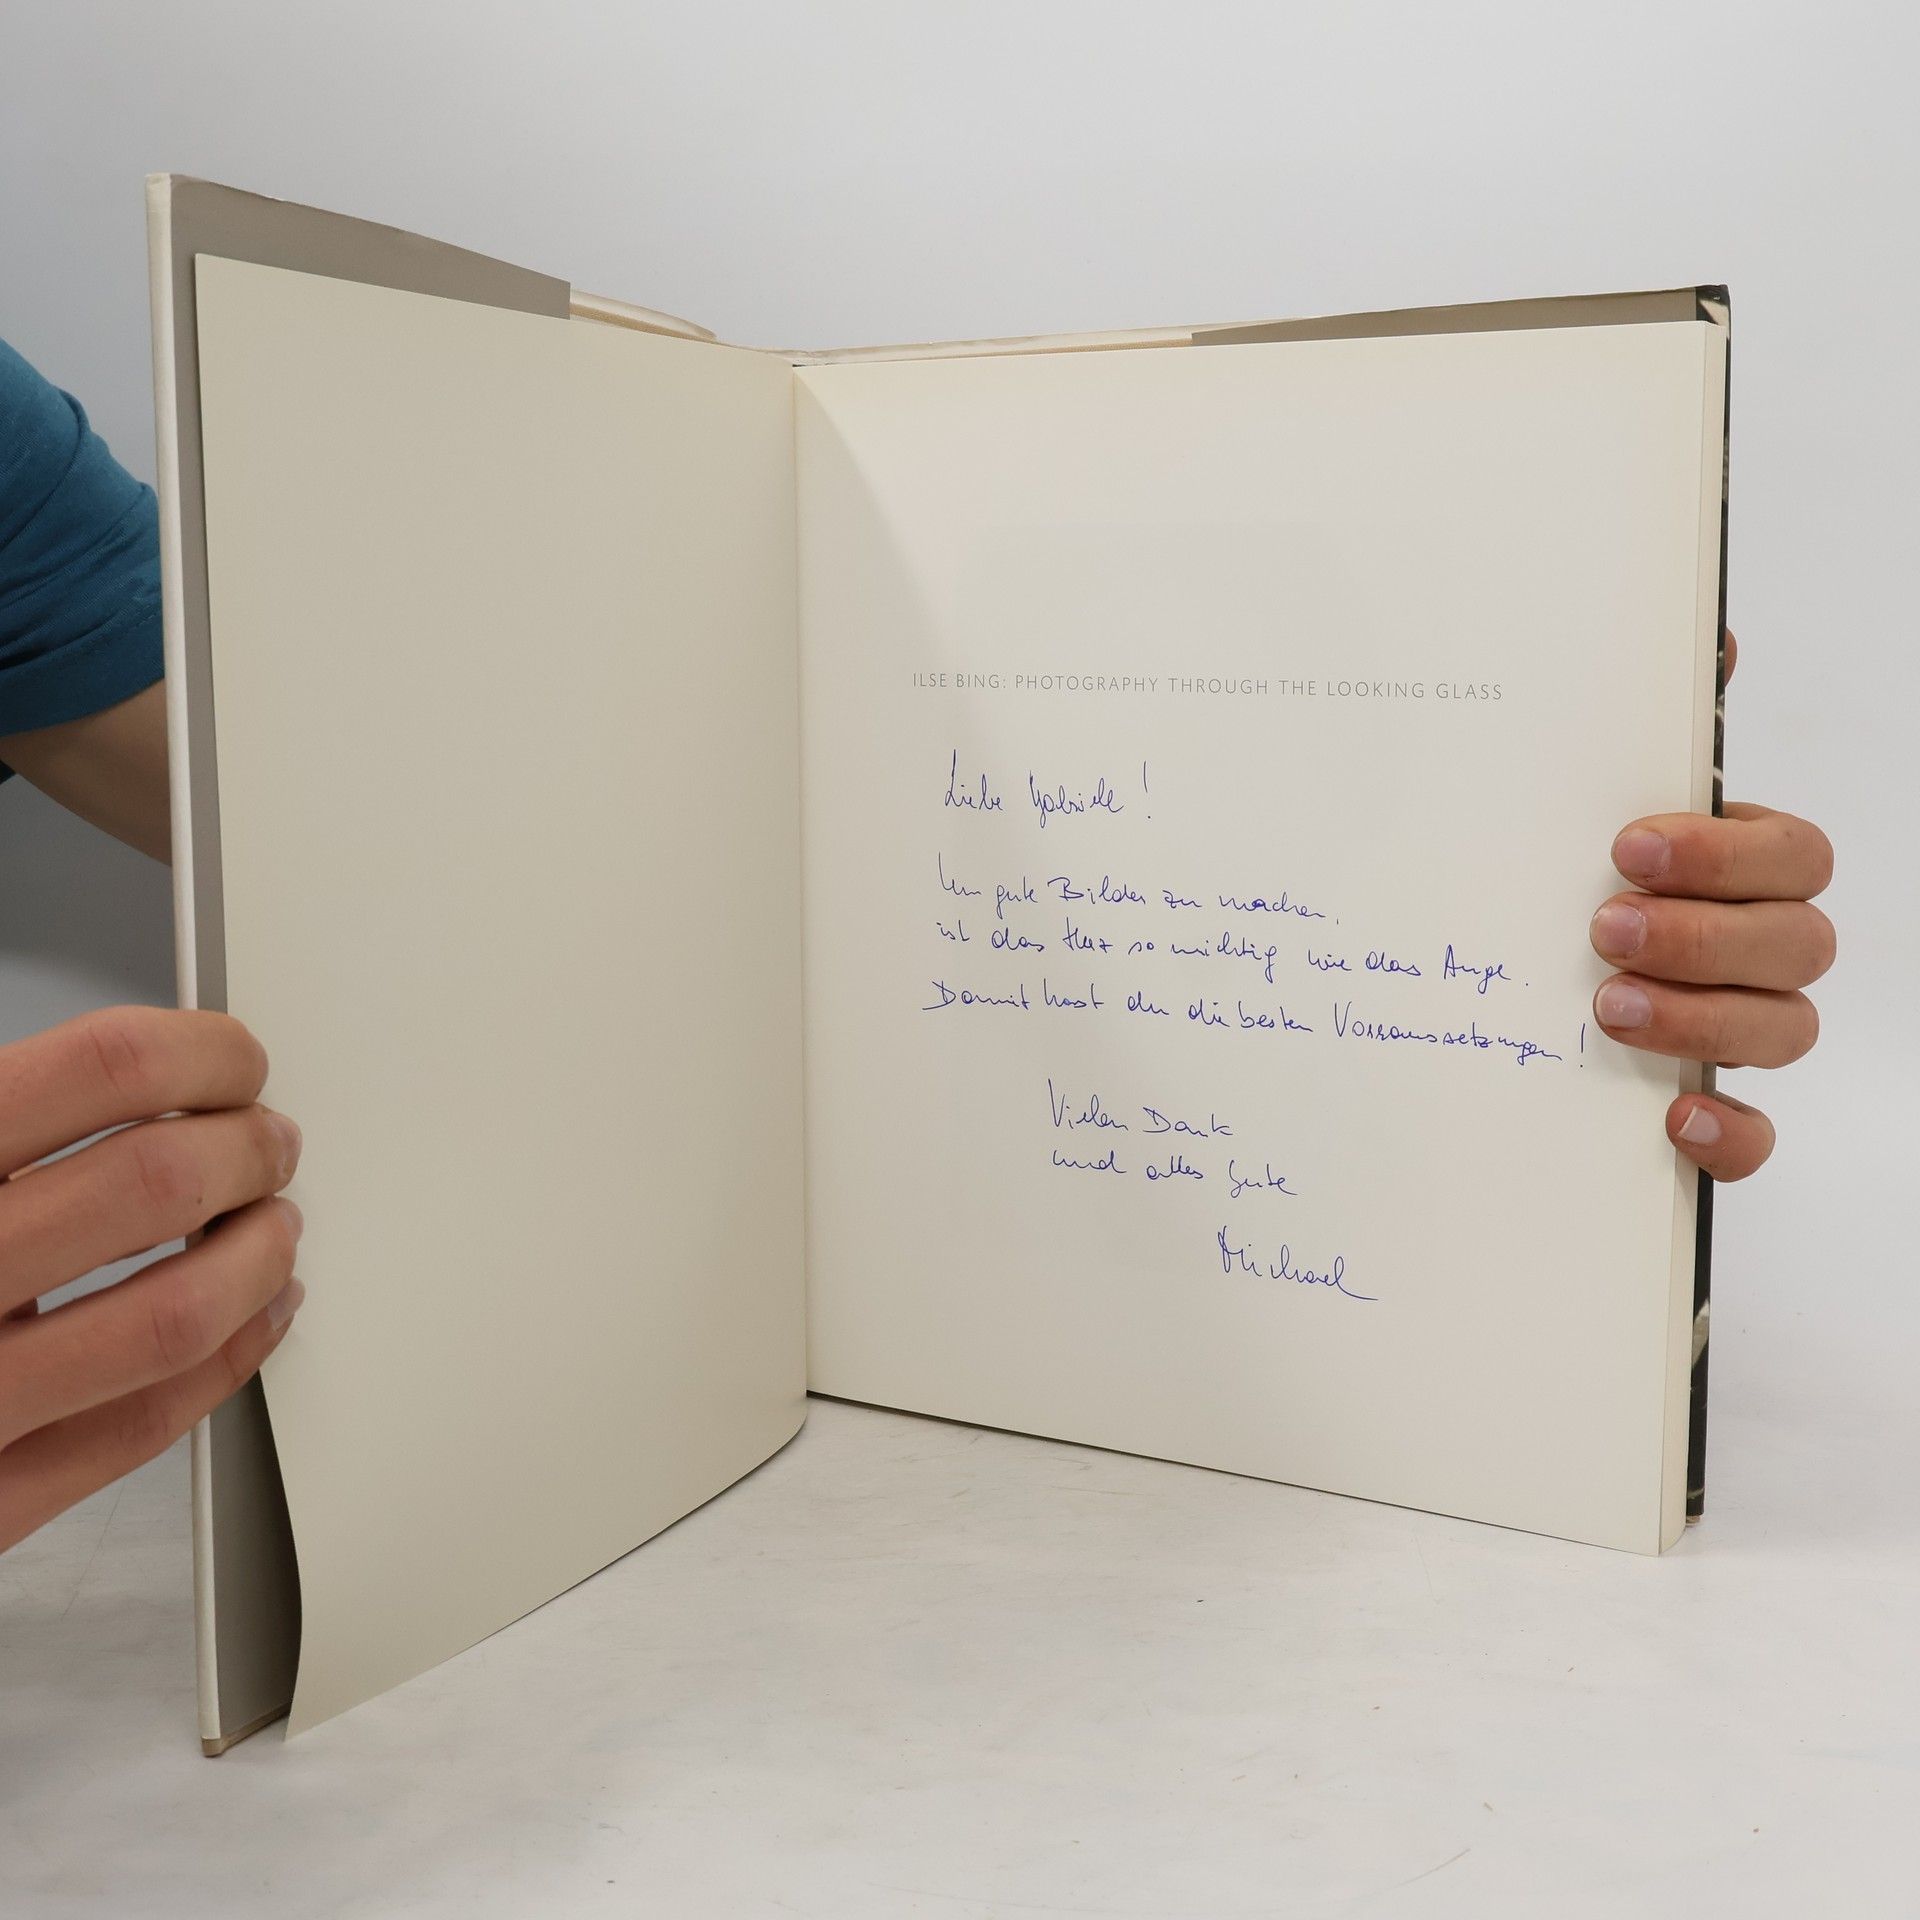 ILSE BING: PHOTOGRAPHY THROUGH THE LOOKING GLASS
Liebe Gabriele !
Um gute Bilder zu machen,
ist das Herz so wichtig wie das Auge.
Damit hast du die besten Vorraussetzungen !
Vielen Dank
und alles Gute
Michael